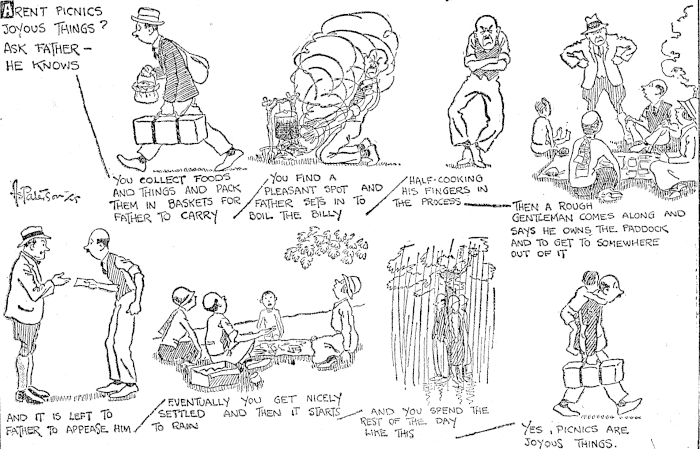 ARENT PICNICS
JOYOUS THINGS?
ASK FATHER –
HE KNOWS
YOU COLLECT FOODS
AND THINGS AND PACK
THEM IN BASKETS FOR
FATHER TO CARRY
YOU FIND A
PLEASANT SPOT AND
FATHER SETS IN TO
BOIL THE BILLY
HALF-COOKING
HIS FINGERS IN
THE PROCESS
THEN A ROUGH
GENTLEMAN COMES ALONG AND
SAYS HE OWNS THE PADDOCK
AND TO GET TO SOMEWHERE
OUT OF IT
AND IT IS LEFT TO
FATHER TO APPEASE HIM
EVENTUALLY YOU GET NICELY
SETTLED AND THEN IT STARTS
TO RAIN
AND YOU SPEND THE
REST OF THE DAY
LIKE THIS
YES, PICNICS ARE
JOYOUS THINGS.